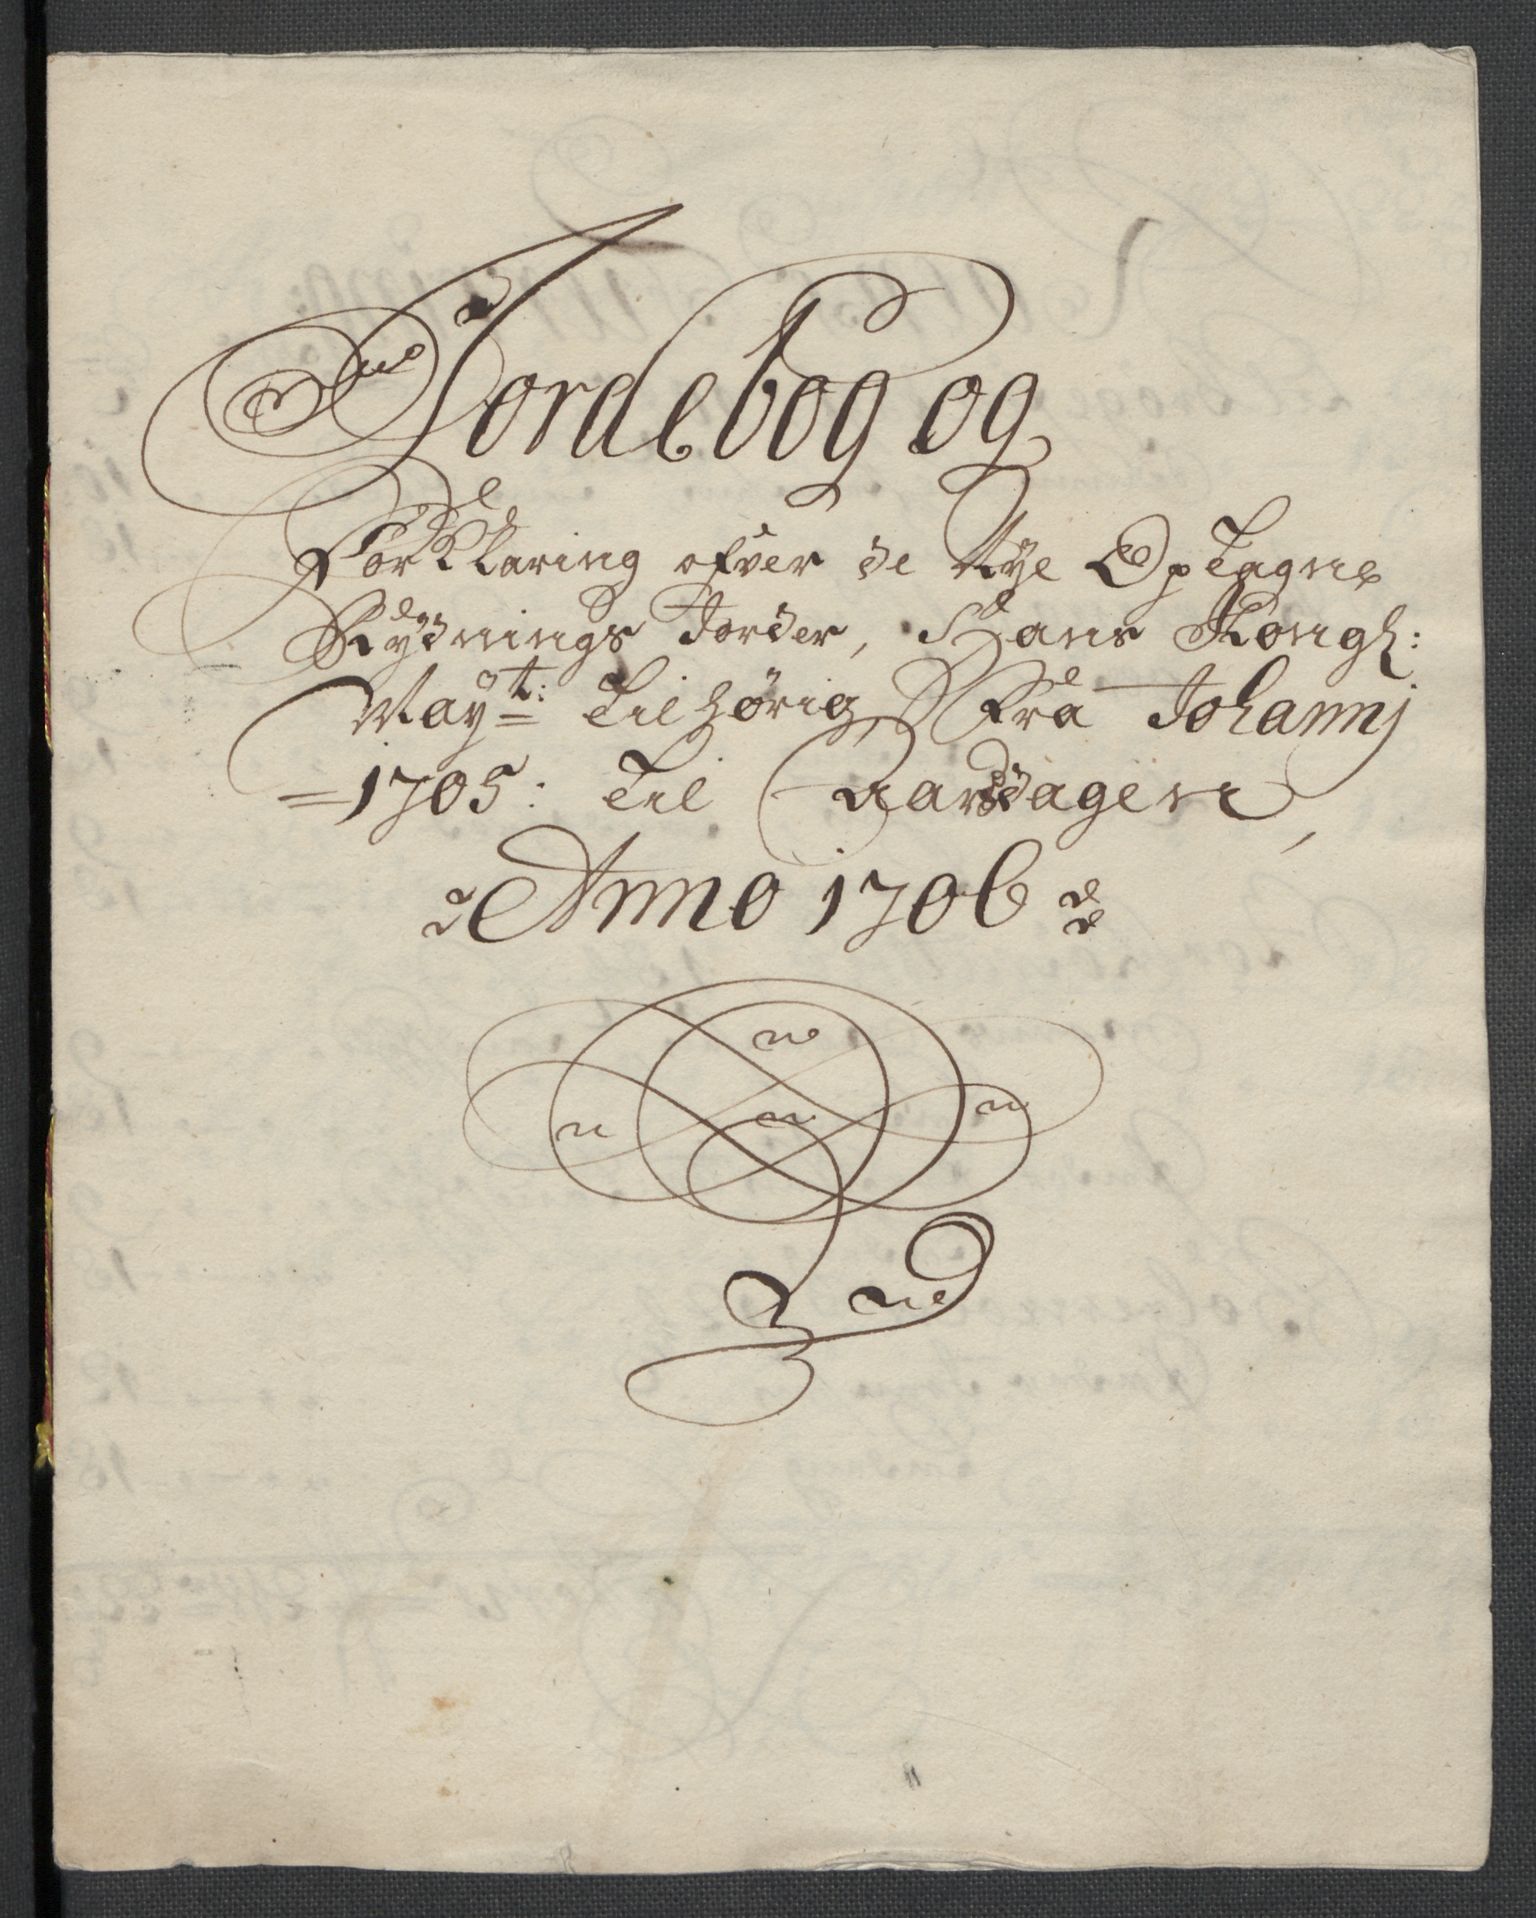 Jordebog og
Forklaring ofver de Nye Optagne
Rydnings Jorder, Hans Kongl:
Mayt: Tilhørig, Fra Johannj
1705: Til Aarsdagen
Anno 1706